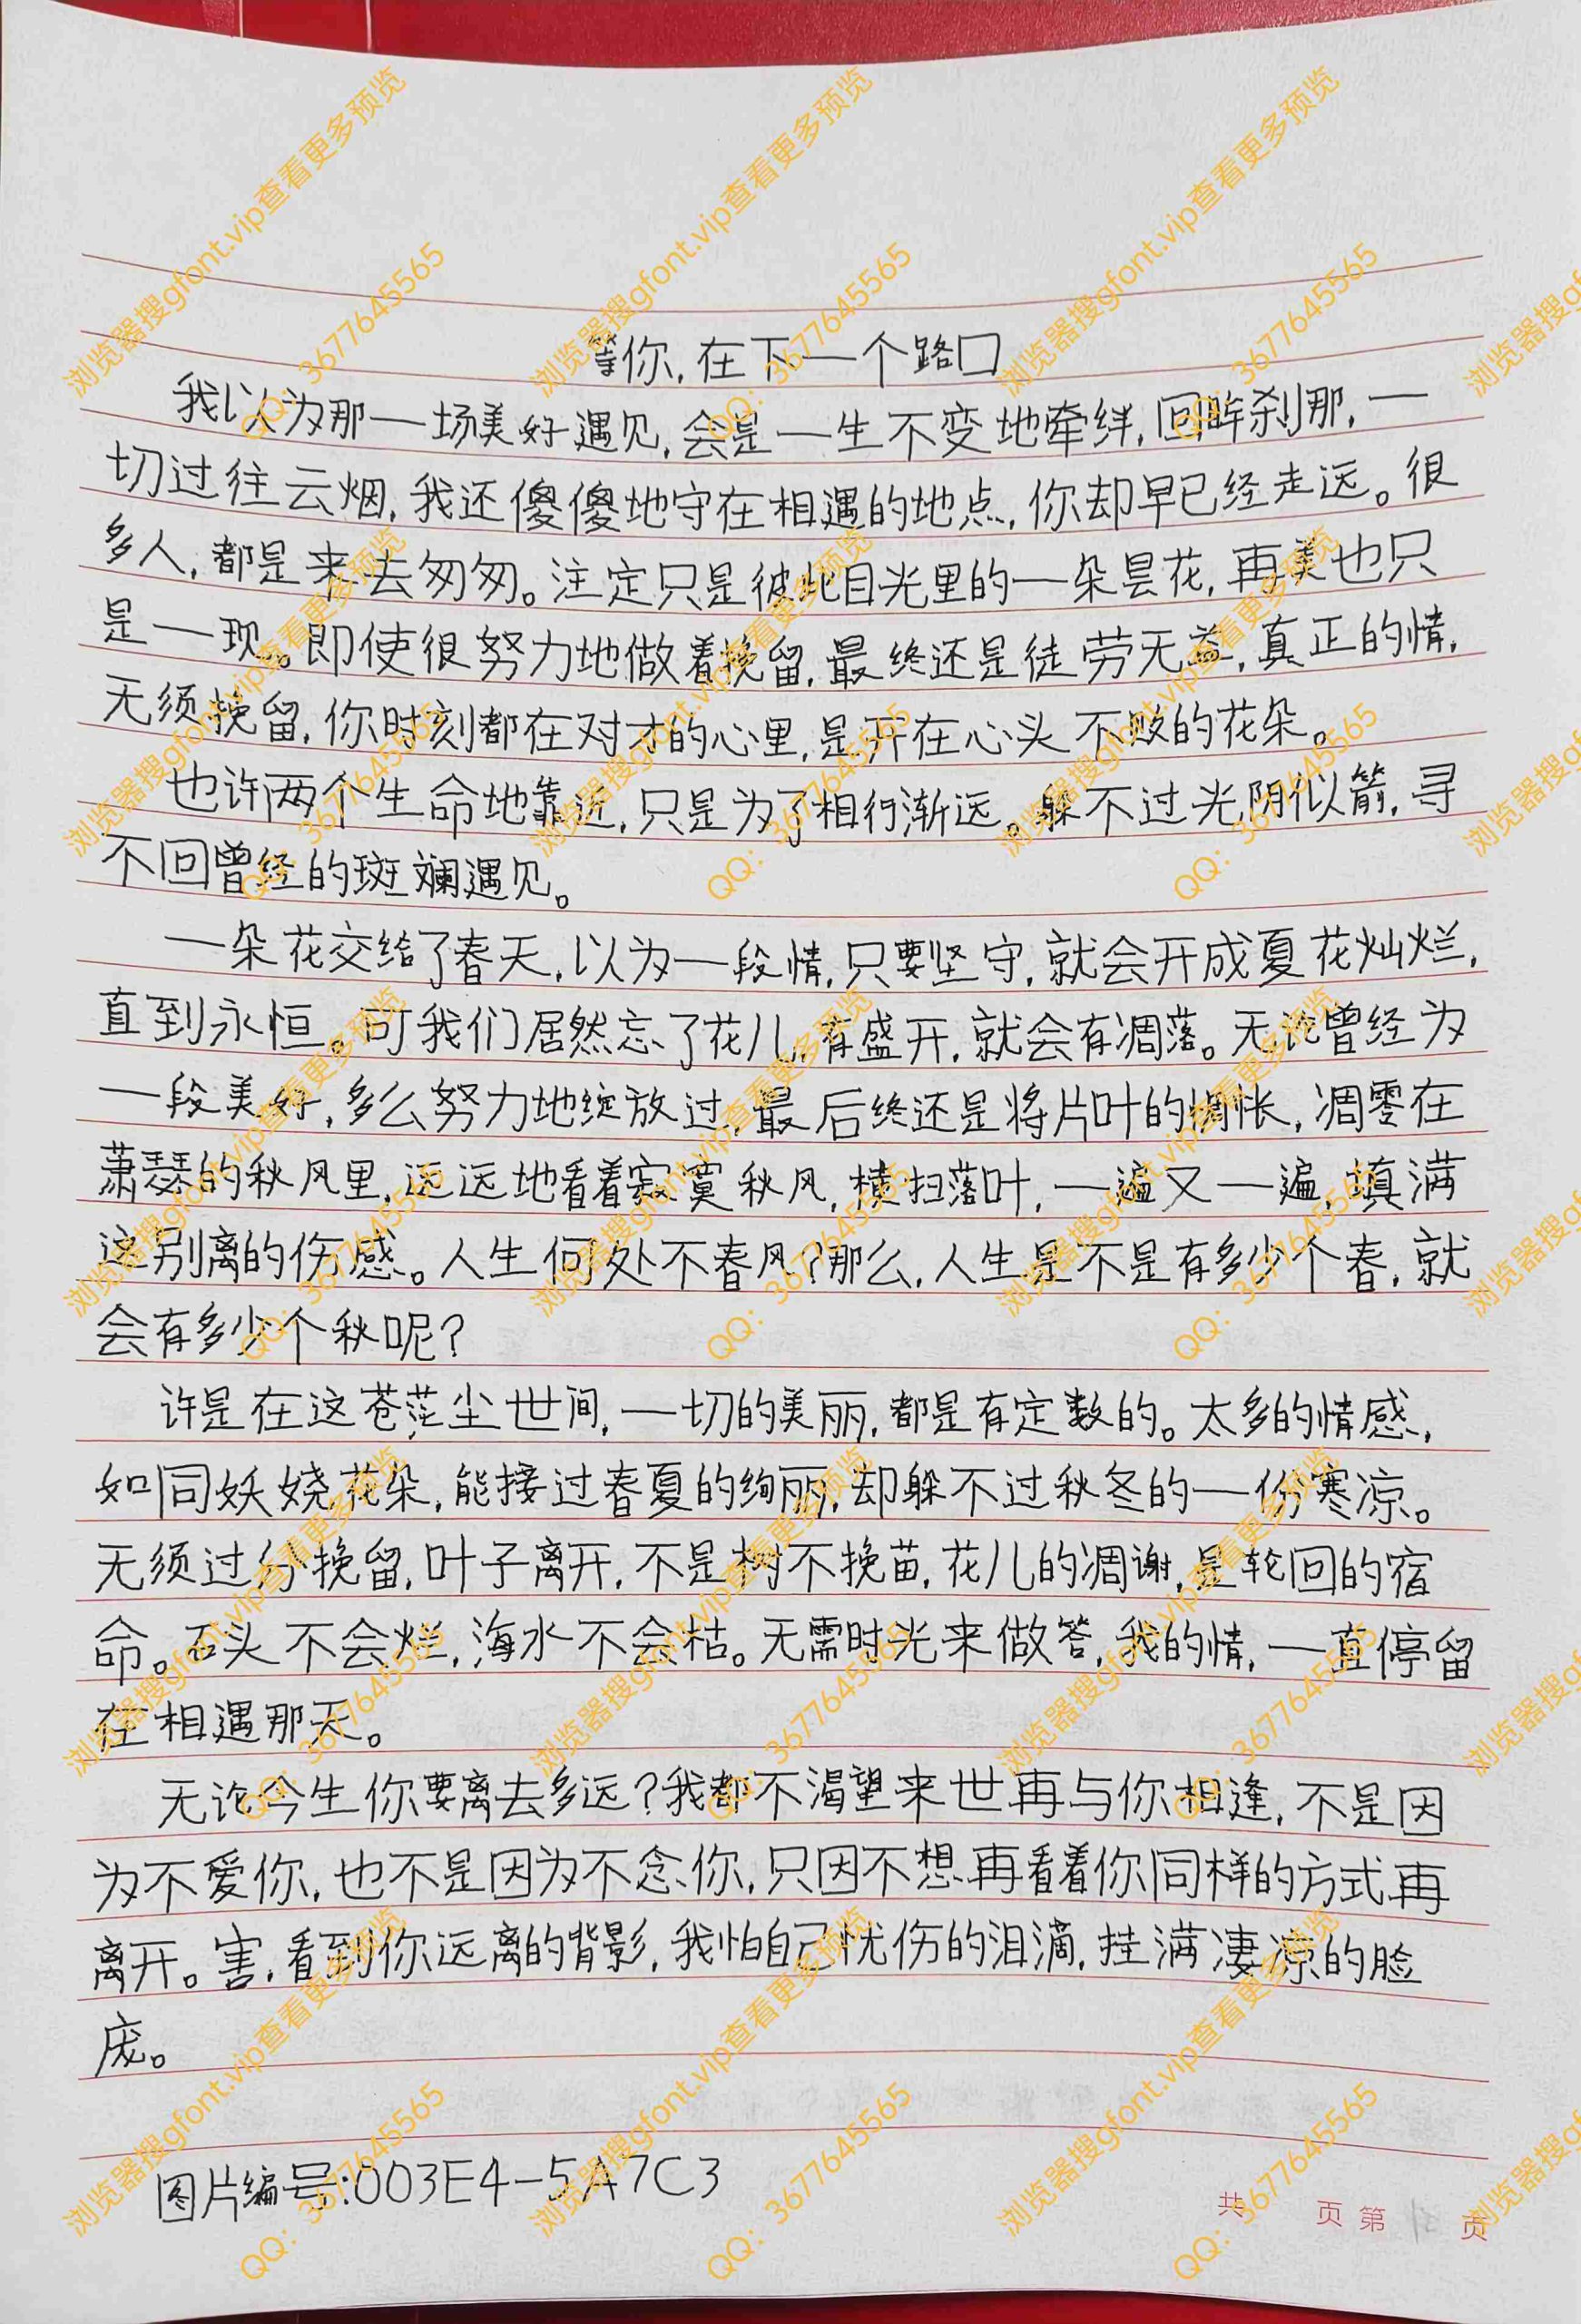 等你,在下一个路口
我以为那一场美好遇见,会是一生不变地牵绊,回眸刹那,一
切过往云烟,我还傻傻地守在相遇的地点,你却早已经走远。很
多人,都是来去匆匆。注定只是彼此目光里的一朵昙花,再美也只
是一现。即使很努力地做着挽留,最终还是徒劳无益,真正的情,
无须挽留,你时刻都在对才的心里,是开在心头不败的花朵。
也许两个生命地靠近,只是为了相行渐远。躲不过光阴似箭,寻
不回曾经的斑斓遇见。
一朵花交给了春天,以为一段情,只要坚守,就会开成夏花灿烂,
直到永恒。可我们居然忘了花儿,有盛开,就会有凋落。无论曾经为
一段美好,多么努力地绽放过,最后终还是将片叶的惆怅,凋零在
萧瑟的秋风里,远远地看着寂寞秋风,横扫落叶,一遍又一遍,填满
这别离的伤感。人生何处不春风?那么,人生是不是有多少个春,就
会有多少个秋呢?
许是在这苍茫尘世间,一切的美丽,都是有定数的。太多的情感,
如同妖娆花朵,能接过春夏的绚丽,却躲不过秋冬的一份寒凉。
无须过分挽留,叶子离开,不是树不挽苗,花儿的凋谢,是轮回的宿
命。石头不会烂,海水不会枯。无需时光来做答,我的情,一直停留
在相遇那天。
无论今生你要离去多远?我都不渴望来世再与你相逢,不是因
为不爱你,也不是因为不念你,只因不想再看着你同样的方式再
离开。害,看到你远离的背影,我怕自己忧伤的泪滴,挂满凄凉的脸
庞。
图片编号:003E4-5A7C3
共 页 第 页
浏览器搜gfont.vip查看更多预览
QQ: 3677645565